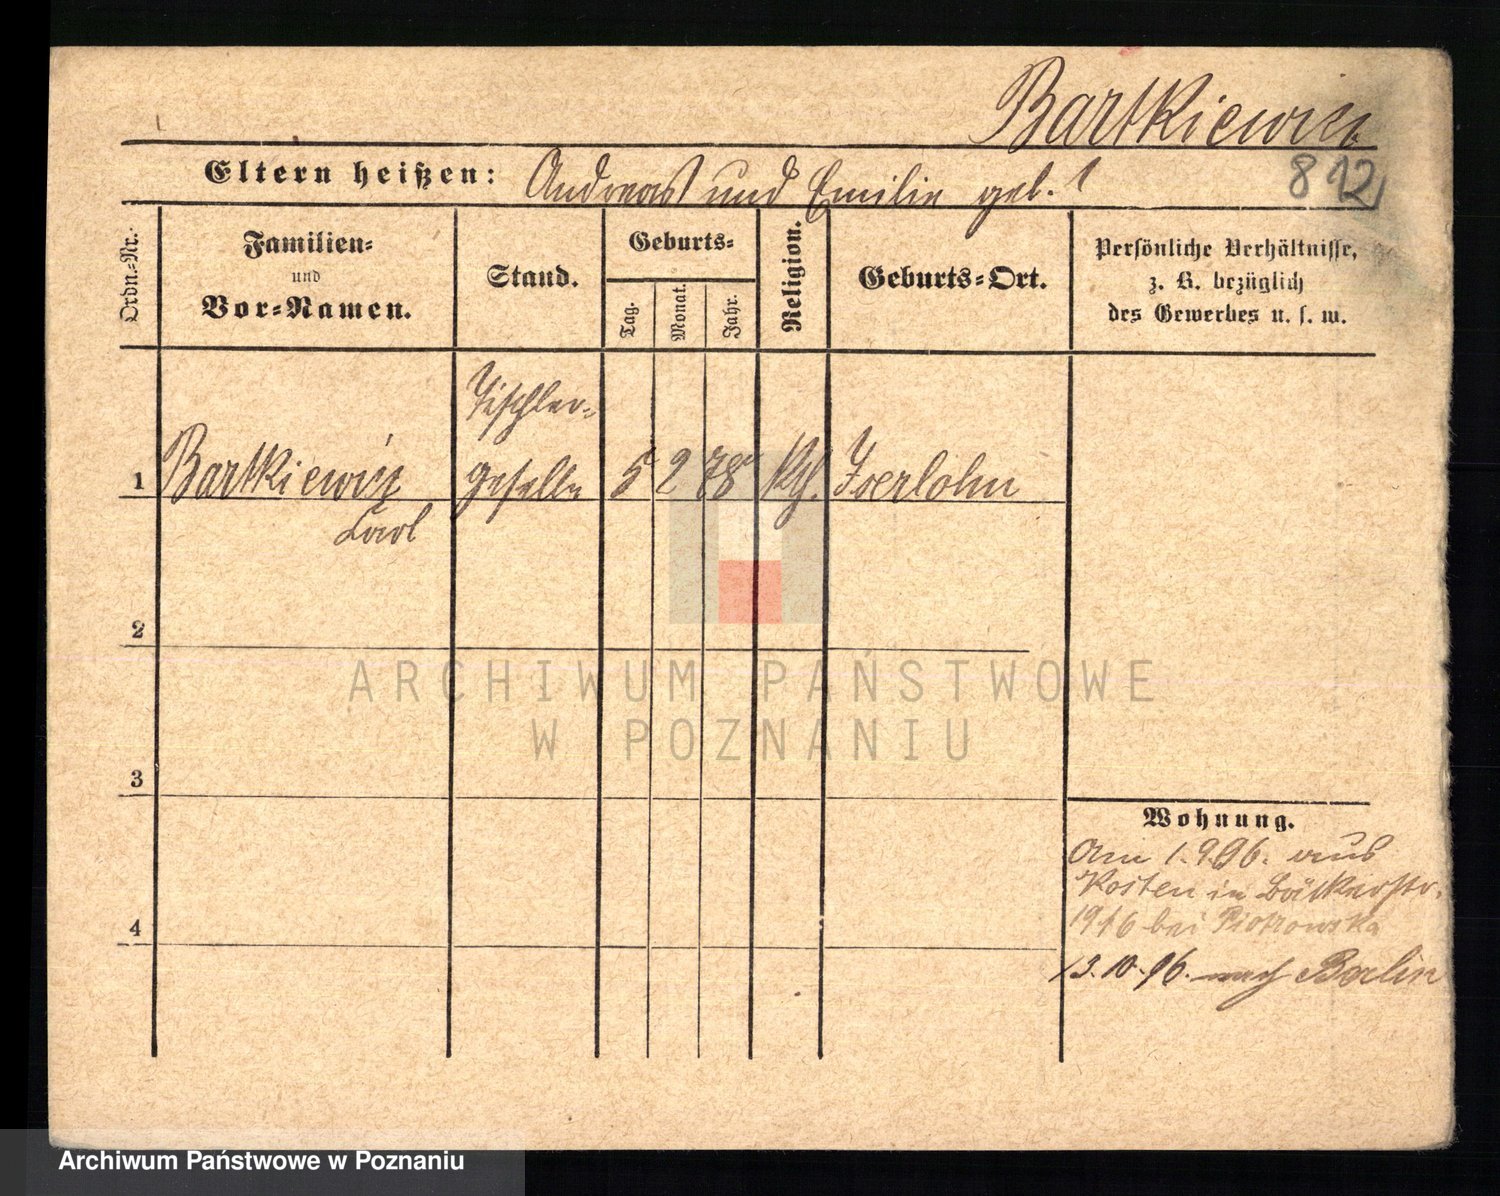 Bartkiewicz
812
Eltern heißen: Andreas und Emilie geb.
Ordn.-Nr.
Familien-
und
Vor-Namen.
Stand.
Geburts-
Tag.
Monat.
Jahr.
Religion.
Geburts-Ort.
Persönliche Verhältnisse,
z. B. bezüglich
des Gewerbes u. s. w.
Tischler-
1 Bartkiewicz geselle 5 2 78 kth. Iserlohn
Karl
2
3
4
Wohnung.
Am 1.9.96. aus
Kosten in Bäckerstr.
bei Piotrowska
13.10.96. nach Berlin
ARCHIWUM PAŃSTWOWE
W POZNANIU
Archiwum Państwowe w Poznaniu